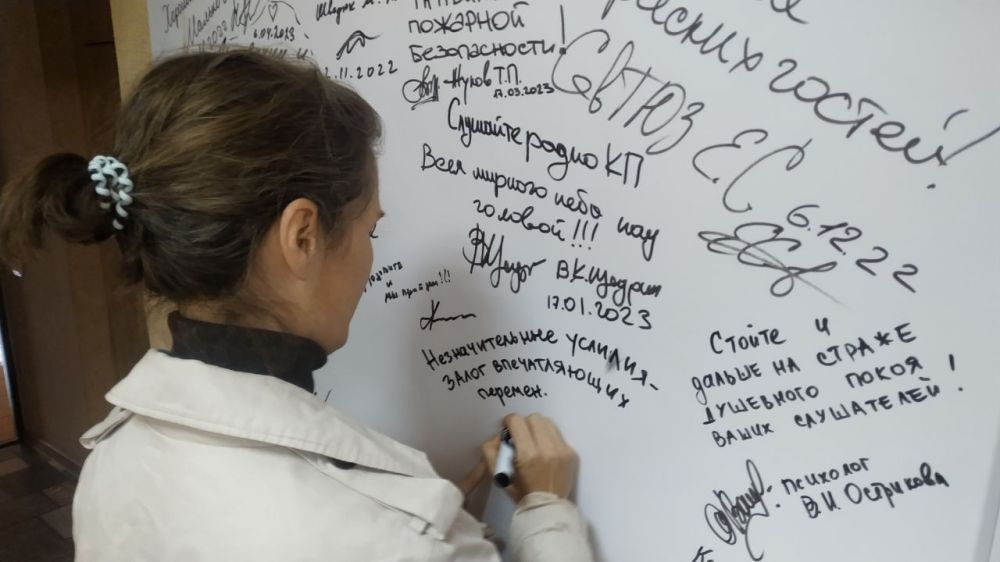 6.04.2023
2.11.2022
пожарной
безопасности!
Жуков Т.П.
17.03.2023
гостей!
СевТЮЗ
Е.С
6.12.22
Слушайте радио КП
Всем мирного небо над
головой!!!
В.К.
17.01.2023
и
Незначительные усилия-
залог впечатляющих
перемен.
Стойте и
дальше на страже
душевного покоя
ваших слушателей!
психолог
В.И. Острикова